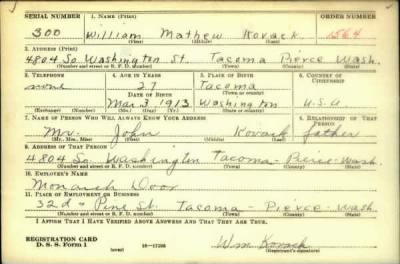 SERIAL NUMBER 1. NAME (Print) ORDER NUMBER
300 William Mathew Kovack 1564
(First) (Middle) (Last)
2. ADDRESS (Print)
4804 So Washington St. Tacoma Pierce Wash.
(Number and street or R. F. D. number) (Town) (County) (State)
3. TELEPHONE 4. AGE IN YEARS 5. PLACE OF BIRTH 6. COUNTRY OF CITIZENSHIP
none 27 Tacoma
DATE OF BIRTH (Town or county)
Mar 3 1913 Washington U.S.A
(Exchange) (Number) (Mo.) (Day) (Yr.) (State or country)
7. NAME OF PERSON WHO WILL ALWAYS KNOW YOUR ADDRESS 8. RELATIONSHIP OF THAT PERSON
Mr. John Kovack father
(Mr., Mrs., Miss) (First) (Middle) (Last)
9. ADDRESS OF THAT PERSON
4804 So. Washington Tacoma - Pierce - Wash.
(Number and street or R. F. D. number) (Town) (County) (State)
10. EMPLOYER'S NAME
Monarch Door
11. PLACE OF EMPLOYMENT OR BUSINESS
32d & Pine St. Tacoma - Pierce - Wash.
(Number and street or R. F. D. number) (Town) (County) (State)
I AFFIRM THAT I HAVE VERIFIED ABOVE ANSWERS AND THAT THEY ARE TRUE.
REGISTRATION CARD
D. S. S. Form 1 (over) 16—17105 Wm Kovack
(Registrant's signature)